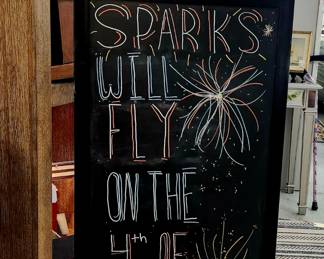 SPARKS
WILL
FLY
ON THE
4th OF